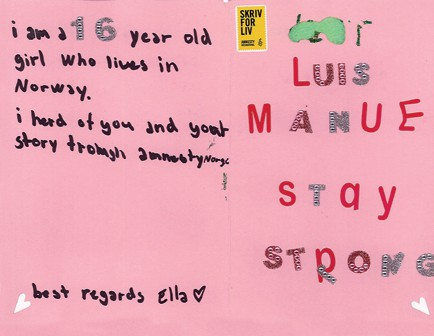 i am a 16 year old
girl who lives in
Norway.
i herd of you and your
story trough amnesty Norge
best regards Ella
SKRIV
FOR
LIV
AMNESTY
LUIS
MANUE
stay
STRONG